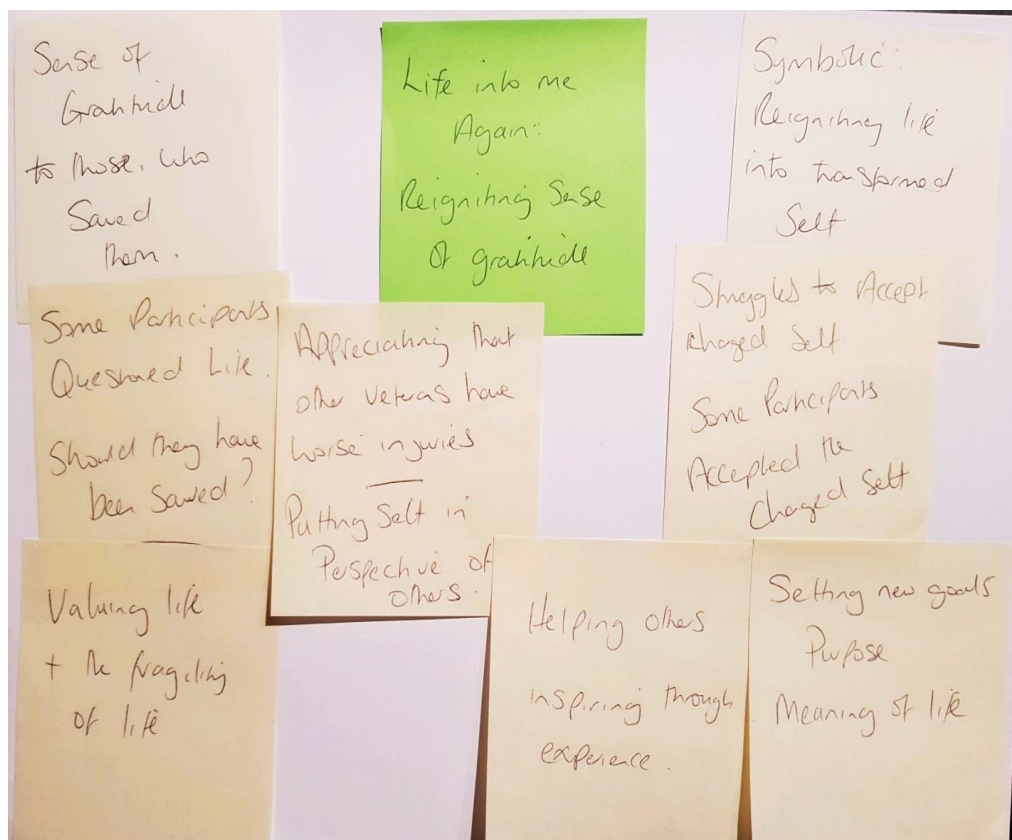 Sense of
Gratitude
to those, who
Saved
them.
Life into me
Again:
Reigniting Sense
Of gratitude
Symbolic:
Reigniting life
into transformed
Self
Some Participants
Questioned Life.
Should they have
been saved?
Appreciating that
other veterans have
worse injuries
Putting Self in
Perspective of
others.
Struggles to Accept
changed Self
Some Participants
Accepted the
Changed Self
Valuing life
+ the fragility
of life
Helping others
inspiring through
experience.
Setting new goals
Purpose
Meaning of life